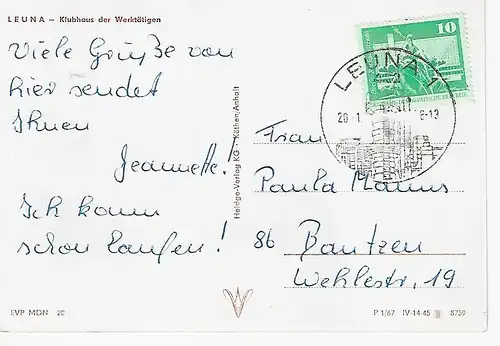 LEUNA – Klubhaus der Werktätigen
Viele Grüße von
hier sendet
Ihnen
Jeannette!
Ich kann
schon laufen!
Heldge-Verlag KG · Köthen/Anhalt
10
LEUNA 1
20-1
8-13
Frau
Paula Manns
86 Bautzen
Wehlestr. 19
EVP MDN 20
P 1/67 IV-14-45 8759